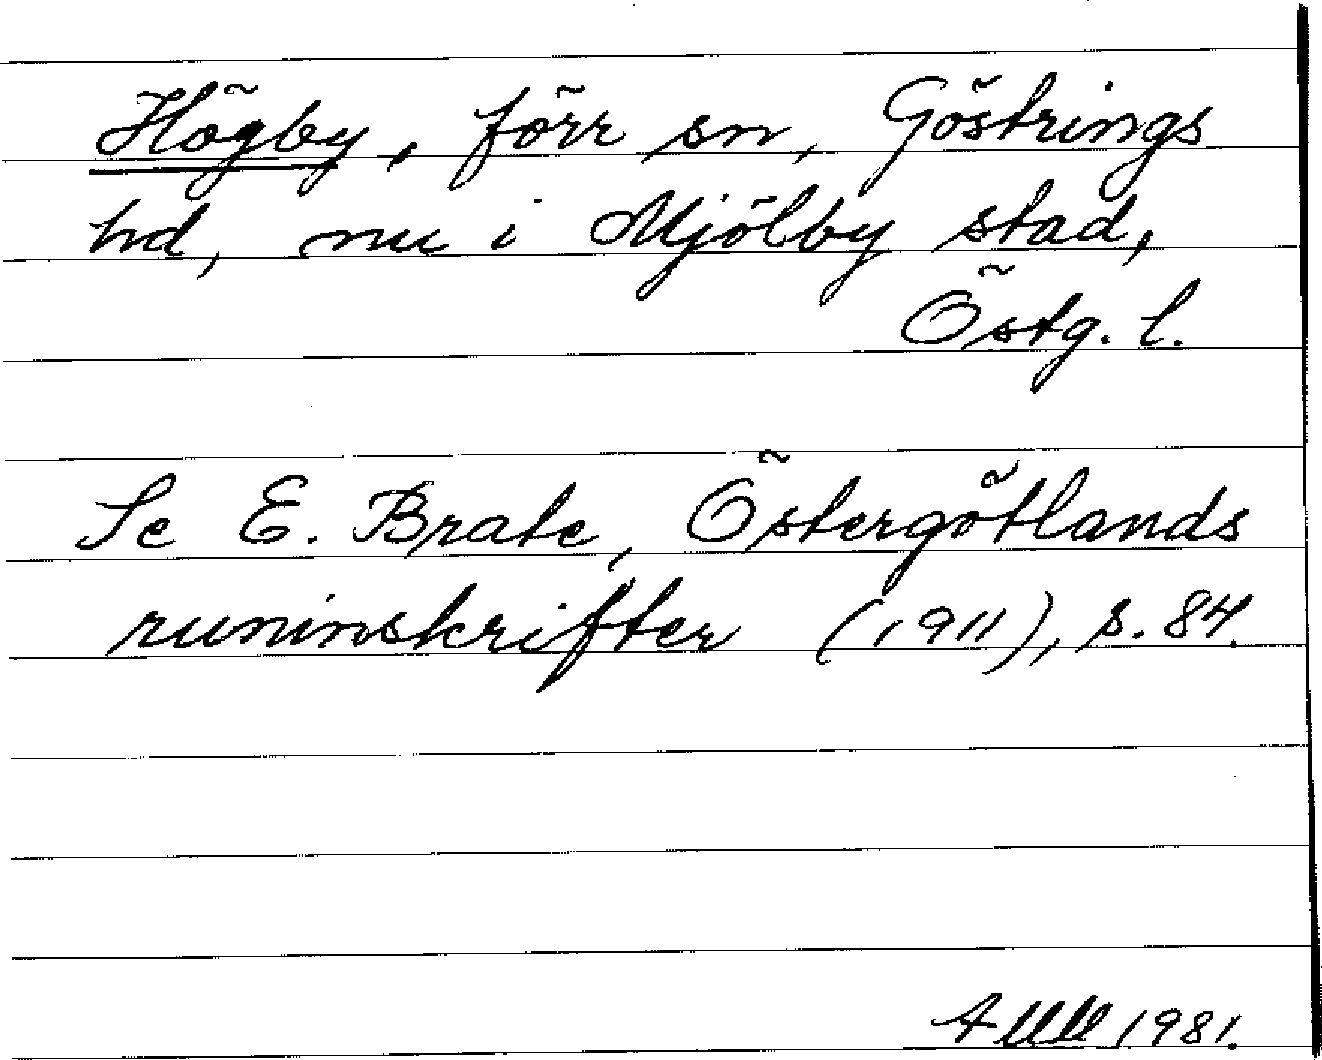 Högby, förr sn, Göstrings
hd, nu i Mjölby stad,
Östg. l.
Se E. Brate, Östergötlands
runinskrifter (1911), s. 84.
1981.